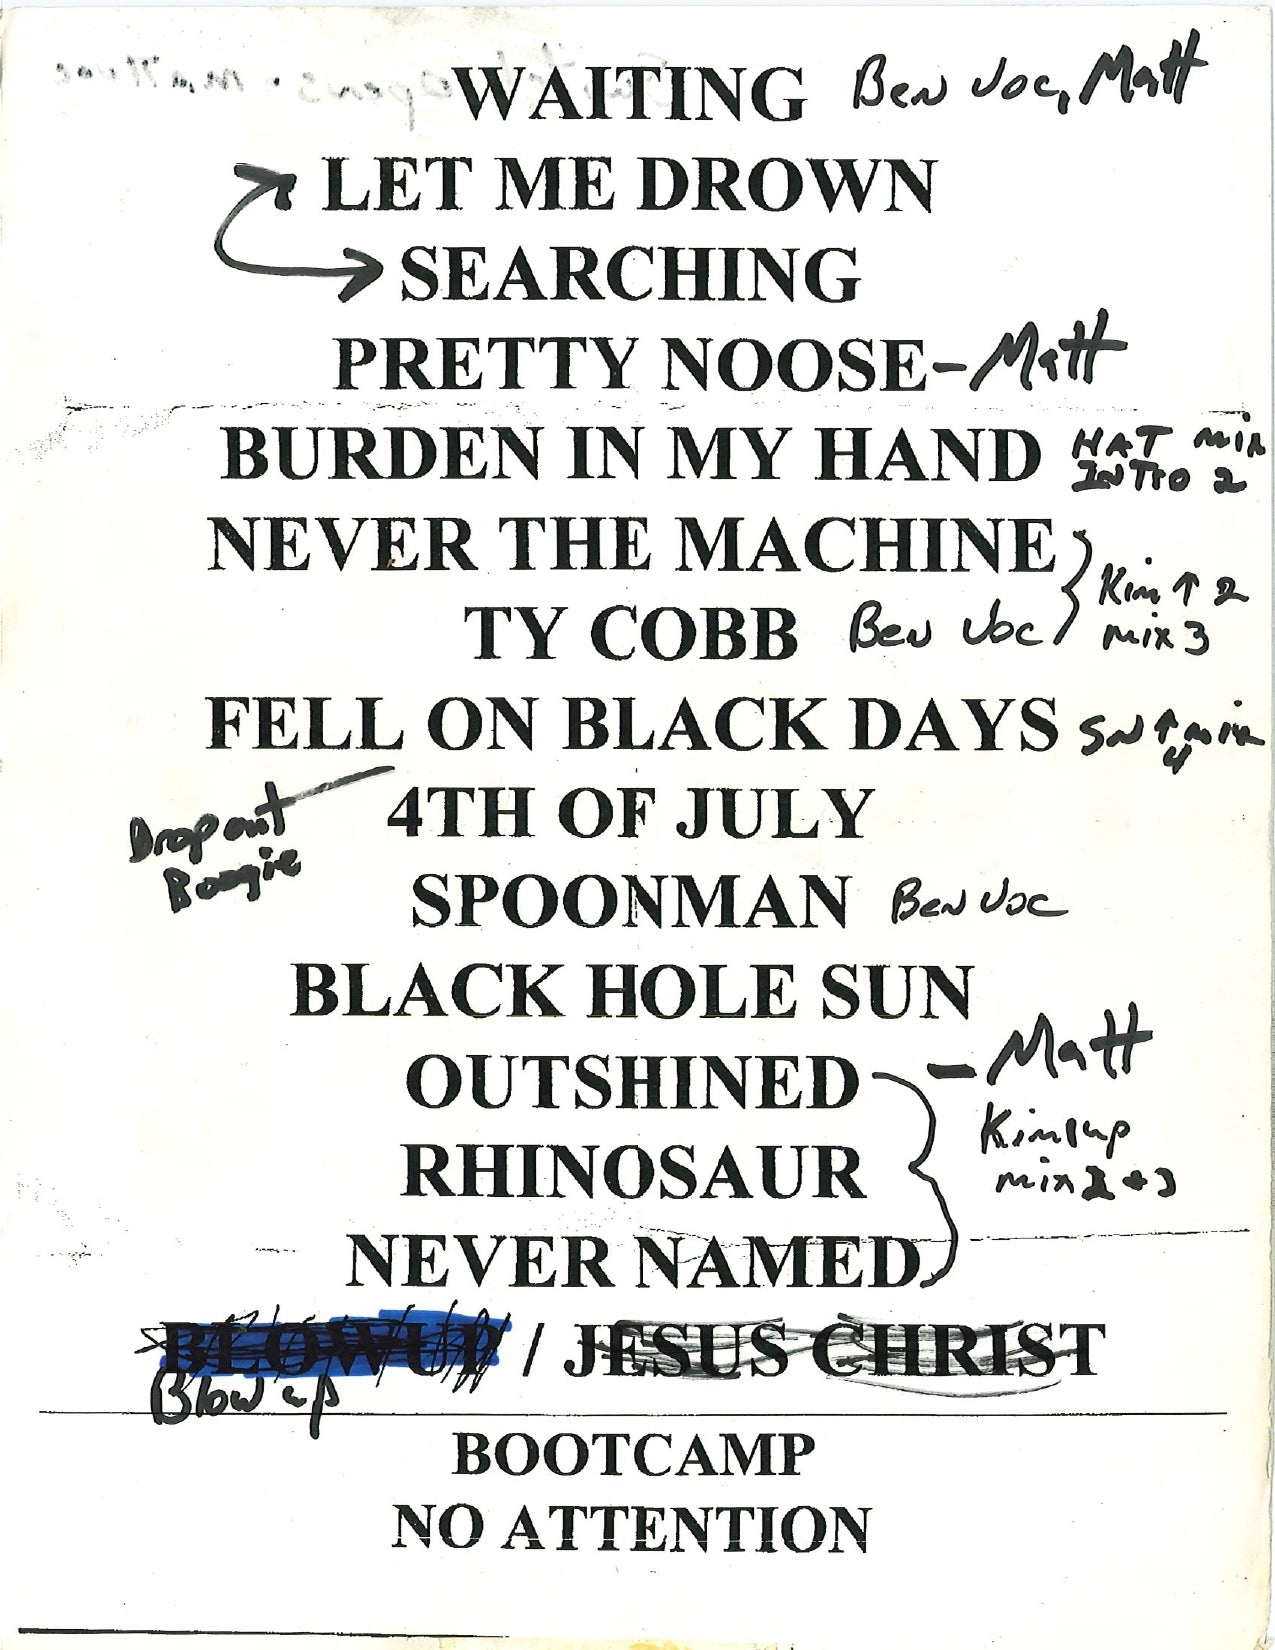 WAITING Ben Voc, Matt
LET ME DROWN
SEARCHING
PRETTY NOOSE - Matt
BURDEN IN MY HAND HAT mix
INTRO 2
NEVER THE MACHINE
Kim ↑ 2
TY COBB Ben Voc mix 3
FELL ON BLACK DAYS SN ↑ mix
4
Drop out 4TH OF JULY
Boogie
SPOONMAN Ben Voc
BLACK HOLE SUN
OUTSHINED - Matt
Kim up
RHINOSAUR mix 2 + 3
NEVER NAMED
BLOWUP / JESUS CHRIST
Blow up
BOOTCAMP
NO ATTENTION